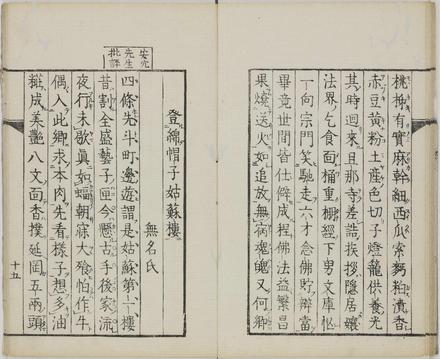 桃柿有實麻幹細西瓜索麪粕漬香
赤豆黃粉土産色切子燈籠供養光
其時迴來旦那寺差詣挨拶隱居孃
法界乞食面桶重棚經下男文庫忙
一向宗門笑馳走六才念佛貯辯當
畢竟世間皆仕僻成捏佛法益繁昌
果燒送火如追放無病魂魄又何鄉
登綿帽子姑蘇樓
無名氏
安穴
先生
批評
四條先斗町邊遊謂是姑蘇第十樓
昔割全盛藝子匣今懸古手後家流
夜行未歇眞如蝠朝寐大飱怕作牛
偶入此鄉求本肉先看樣子想多油
糚成美艷八文面香撲延岡五兩頭
十五